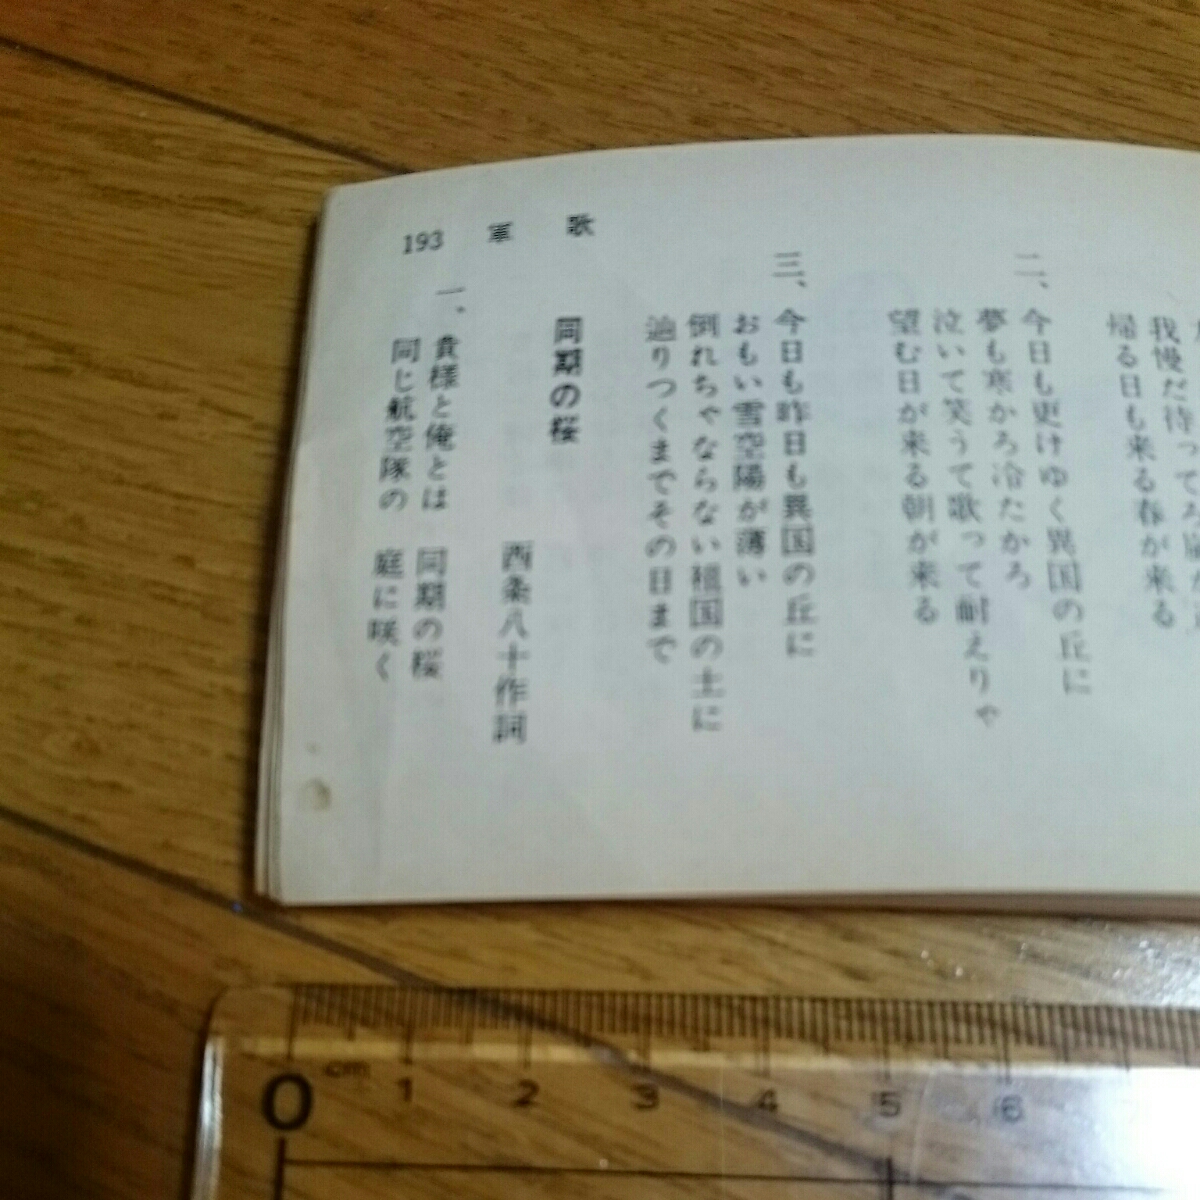 193 軍歌
我慢だ待ってろ
帰る日も来る春が来る
二、今日も更けゆく異国の丘に
夢も寒かろ冷たかろ
泣いて笑うて歌って耐えりゃ
望む日が来る朝が来る
三、今日も昨日も異国の丘に
おもい雪空陽が薄い
倒れちゃならない祖国の土に
辿りつくまでその日まで
同期の桜
西条八十作詞
一、貴様と俺とは 同期の桜
同じ航空隊の 庭に咲く
0 cm 1 2 3 4 5 6